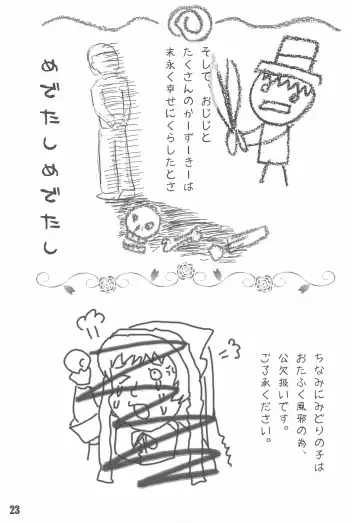 そして、おじじと
たくさんのかーずーきーは
末永く幸せにくらしたとさ
めでたしめでたし
ちなみにみどりの子は
おたふく風邪の為、
公欠扱いです。
ご了承ください。
23